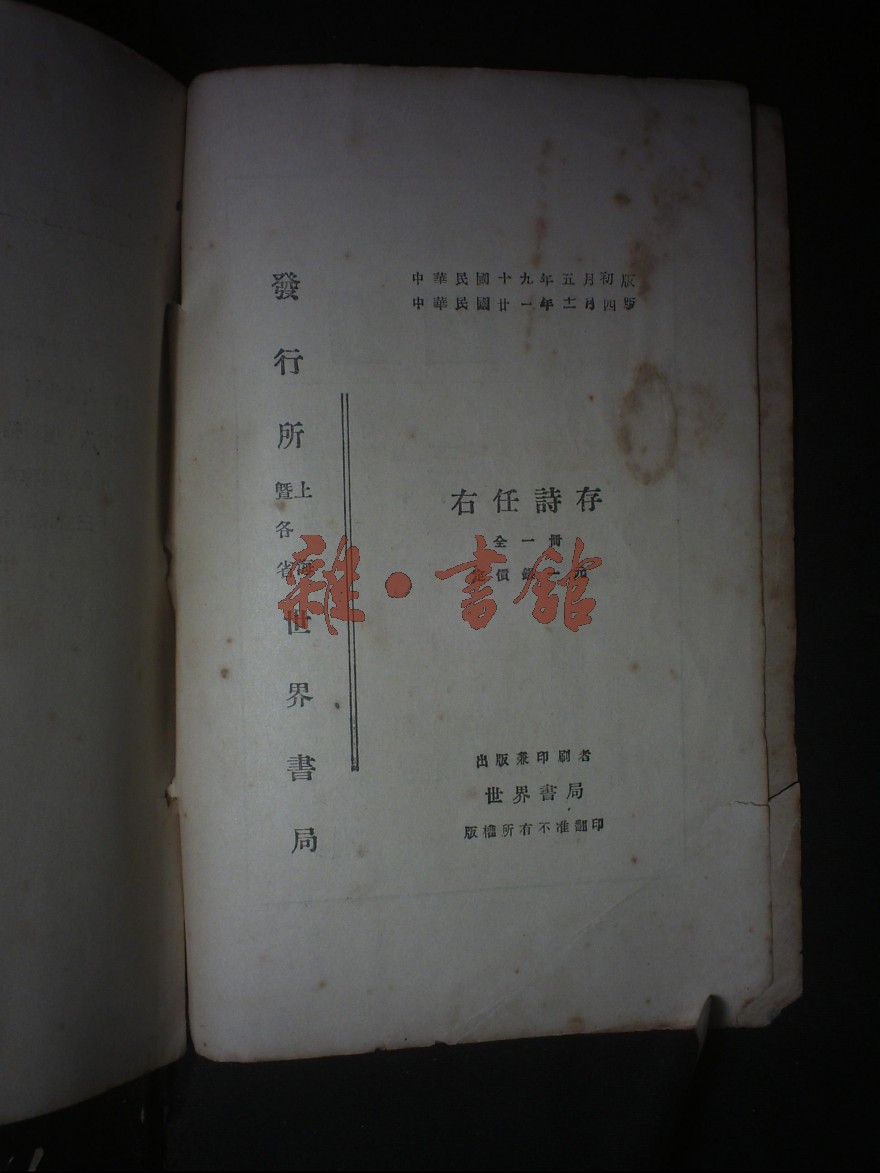 中華民國十九年五月初版
中華民國廿一年十二月四版
右任詩存
全一冊
價銀一元
出版兼印刷者
世界書局
版權所有不准翻印
發行所
上海
暨各省
世界書局
雜·書館